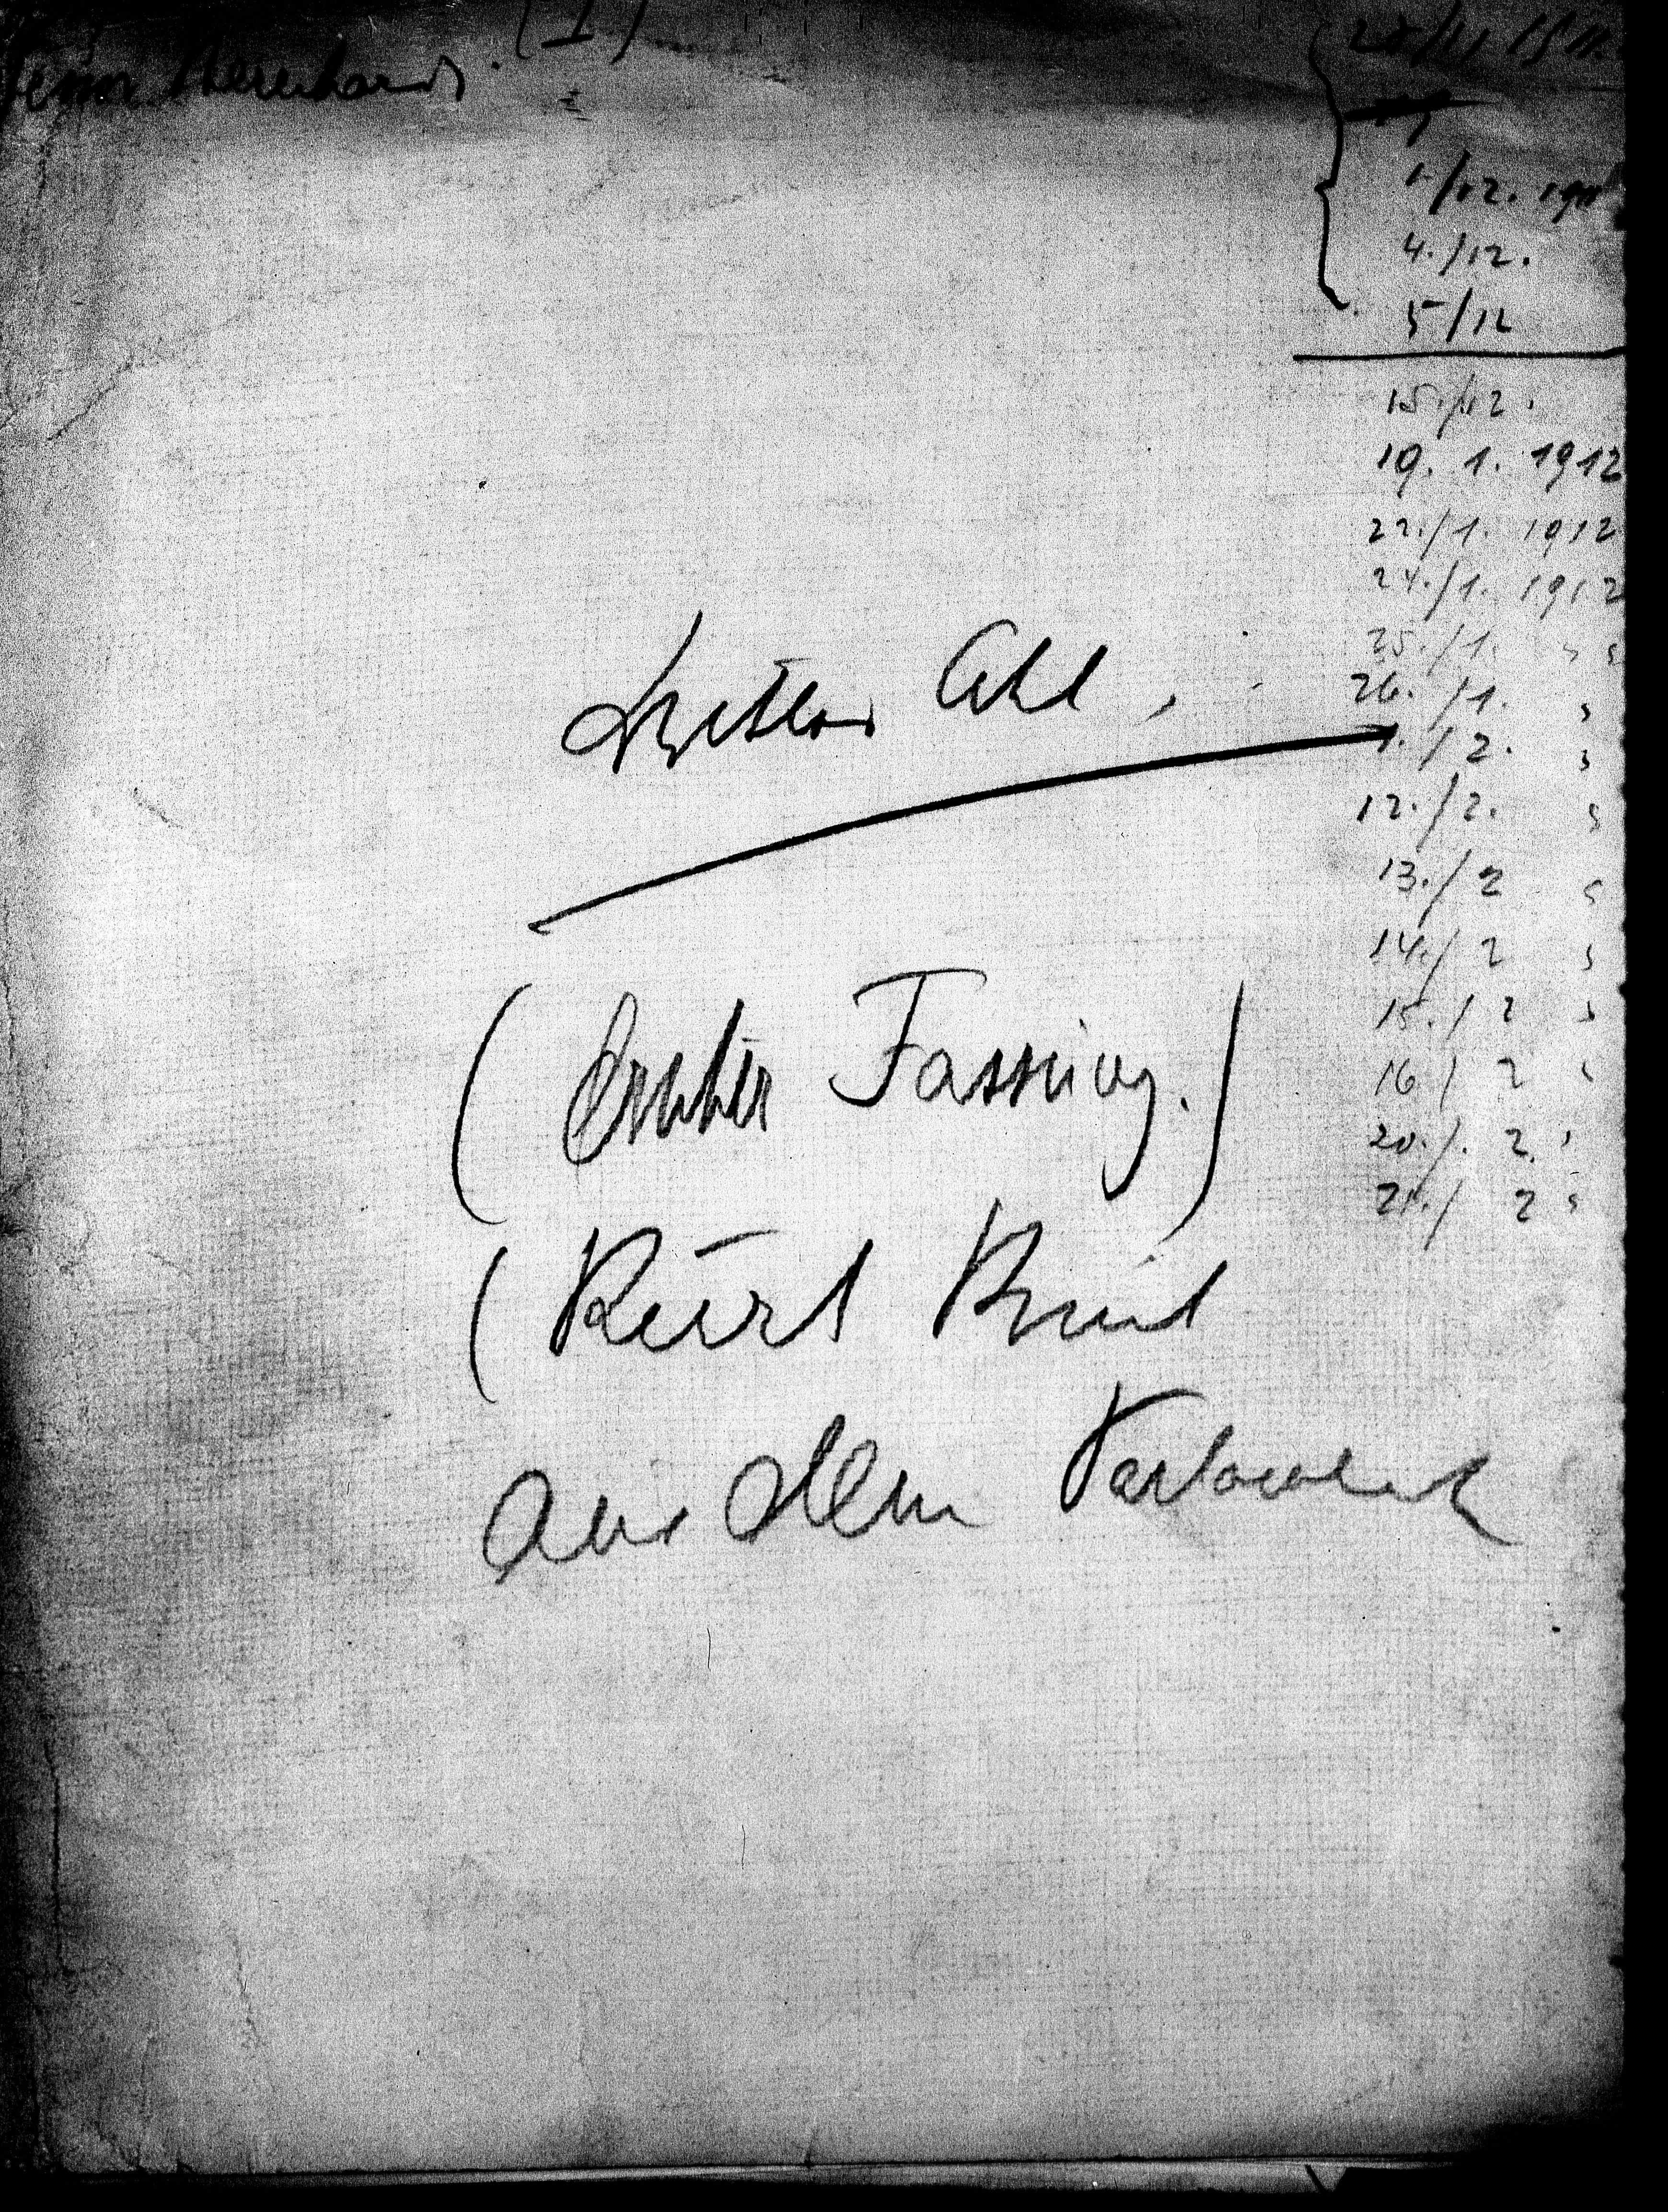 Bernhardi. (I)
1./12. 1911
4./12.
5/12
15./12.
19. 1. 1912
22./1. 1912
24./1. 1912
25./1. " "
26./1. "
1./2. "
12./2. "
13./2 "
14./2 "
15./2 "
16/2 "
20./. 2. "
21./2 "
Akt,
(Erster Fassung.)
(Kurt
aus dem